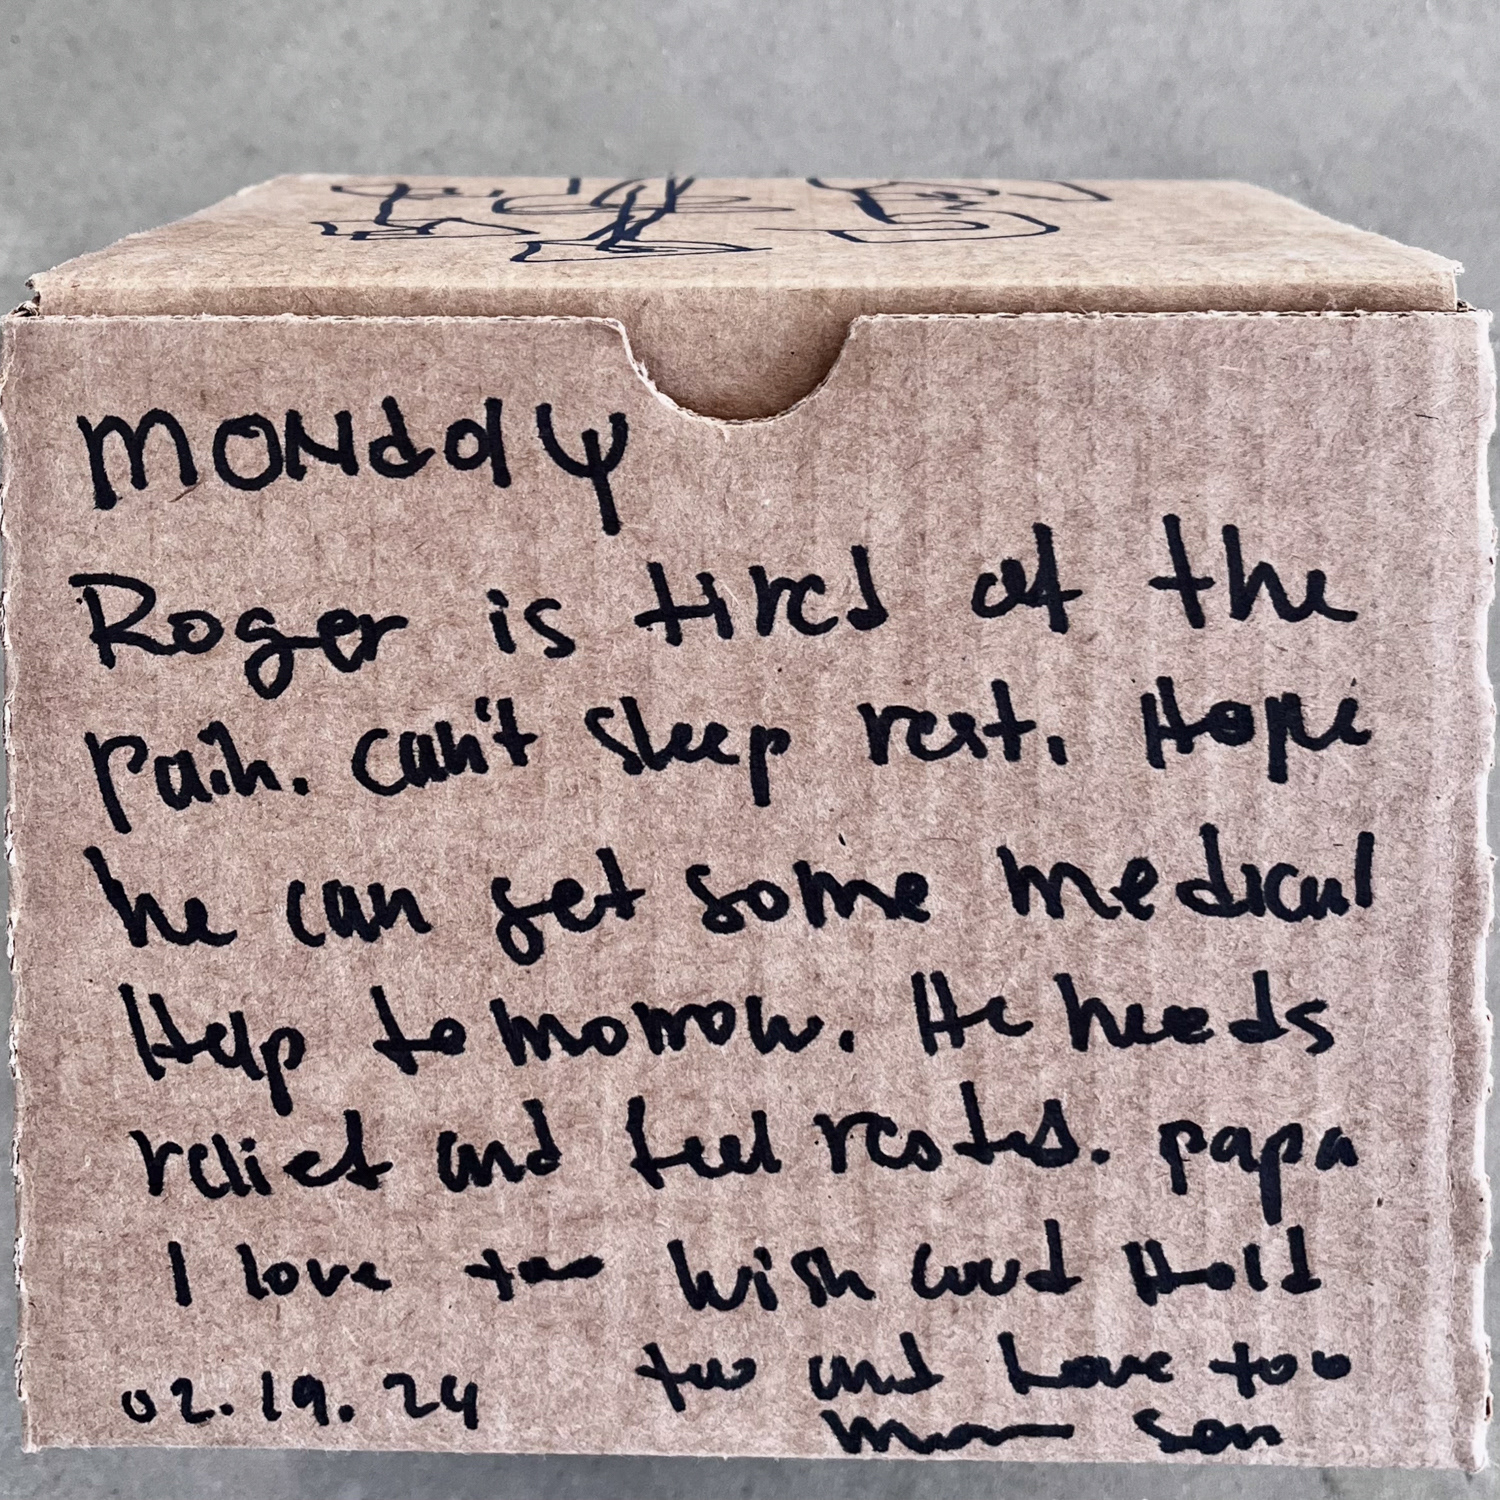 MONday
Roger is tired of the
pain. can't sleep rest. Hope
he can get some medical
Help tomorrow. He needs
relief and feel rested. papa
I love too wish coud Hold
too and Love too
02.19.24
son